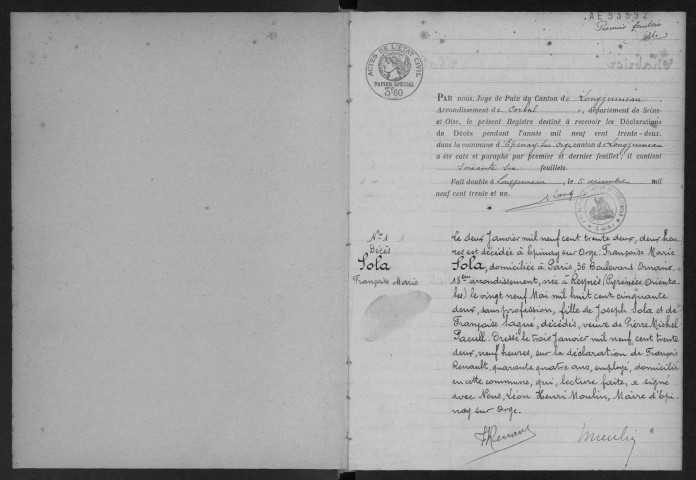 AE53592
Premier feuillet
ACTES DE L'ÉTAT CIVIL
PAPIER SPÉCIAL
3f60
PAR nous, Juge de Paix du Canton de Longjumeau,
Arrondissement de Corbeil, département de Seine-
et-Oise, le présent Registre destiné à recevoir les Déclarations
de Décès pendant l'année mil neuf cent trente-deux,
dans la commune d'Epinay sur Orge canton de Longjumeau
a été coté et paraphé par premier et dernier feuillet; il contient
soixante six feuillets.
Fait double à Longjumeau, le 5 décembre mil
neuf cent trente et un.
N° 1
Décès
Sola
Françoise Marie
Le deux Janvier mil neuf cent trente deux, deux heu
res est décédée à Epinay sur Orge: Françoise Marie
Sola, domiciliée à Paris, 36 Boulevard Ornano,
18ème arrondissement, née à Reynès (Pyrénées Orienta-
les) le vingt neuf Mai mil huit cent cinquante
deux, sans profession, fille de Joseph Sola et de
Françoise Sagué, décédés, veuve de Pierre Michel
Pacull. Dressé le trois Janvier mil neuf cent trente
deux, neuf heures, sur la déclaration de François
Renault, quarante quatre ans, employé, domicilié
en cette commune, qui, lecture faite, a signé
avec Nous, Léon Henri Moulin, Maire d'Epi
nay sur Orge.
FRenault
Moulin